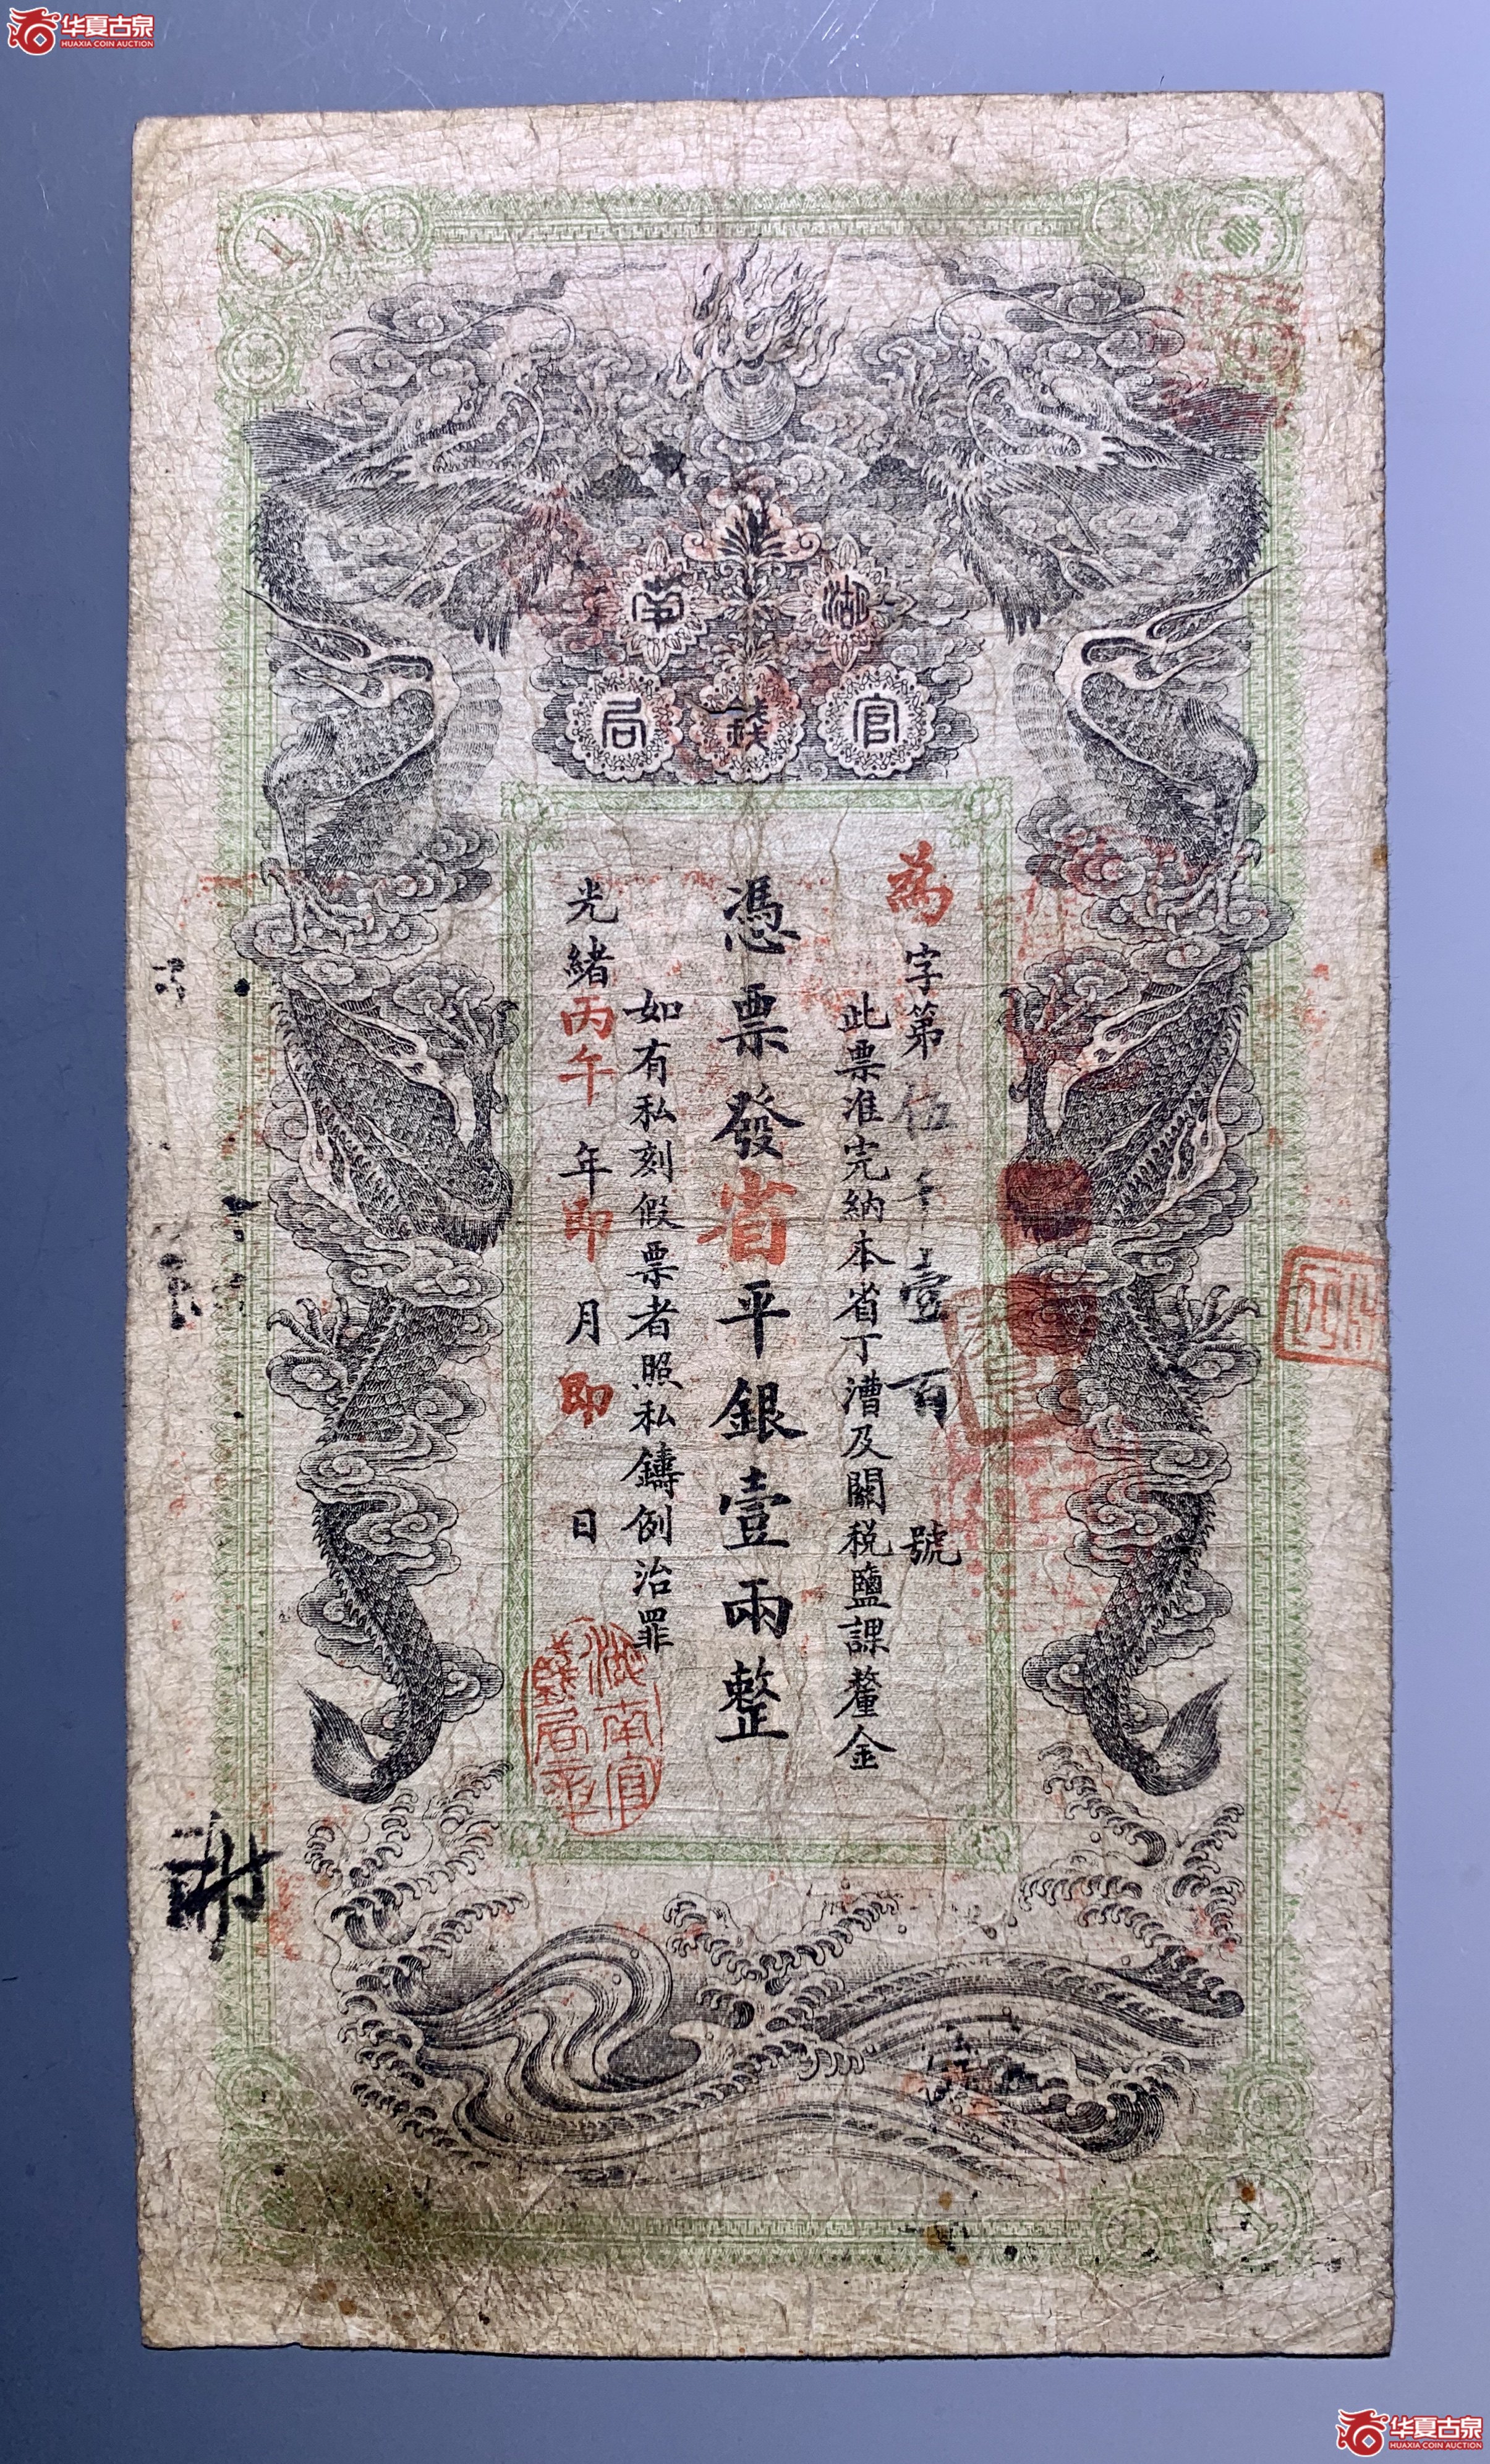 华夏古泉
HUAXIA COIN AUCTION
1
湖南
官錢局
為字第伍千壹百號
此票准完納本省丁漕及關税鹽課釐金
憑票發省平銀壹兩整
如有私刻假票者照私鑄例治罪
光緒丙午年即月即日
湖南官
錢局
华夏古泉
HUAXIA COIN AUCTION